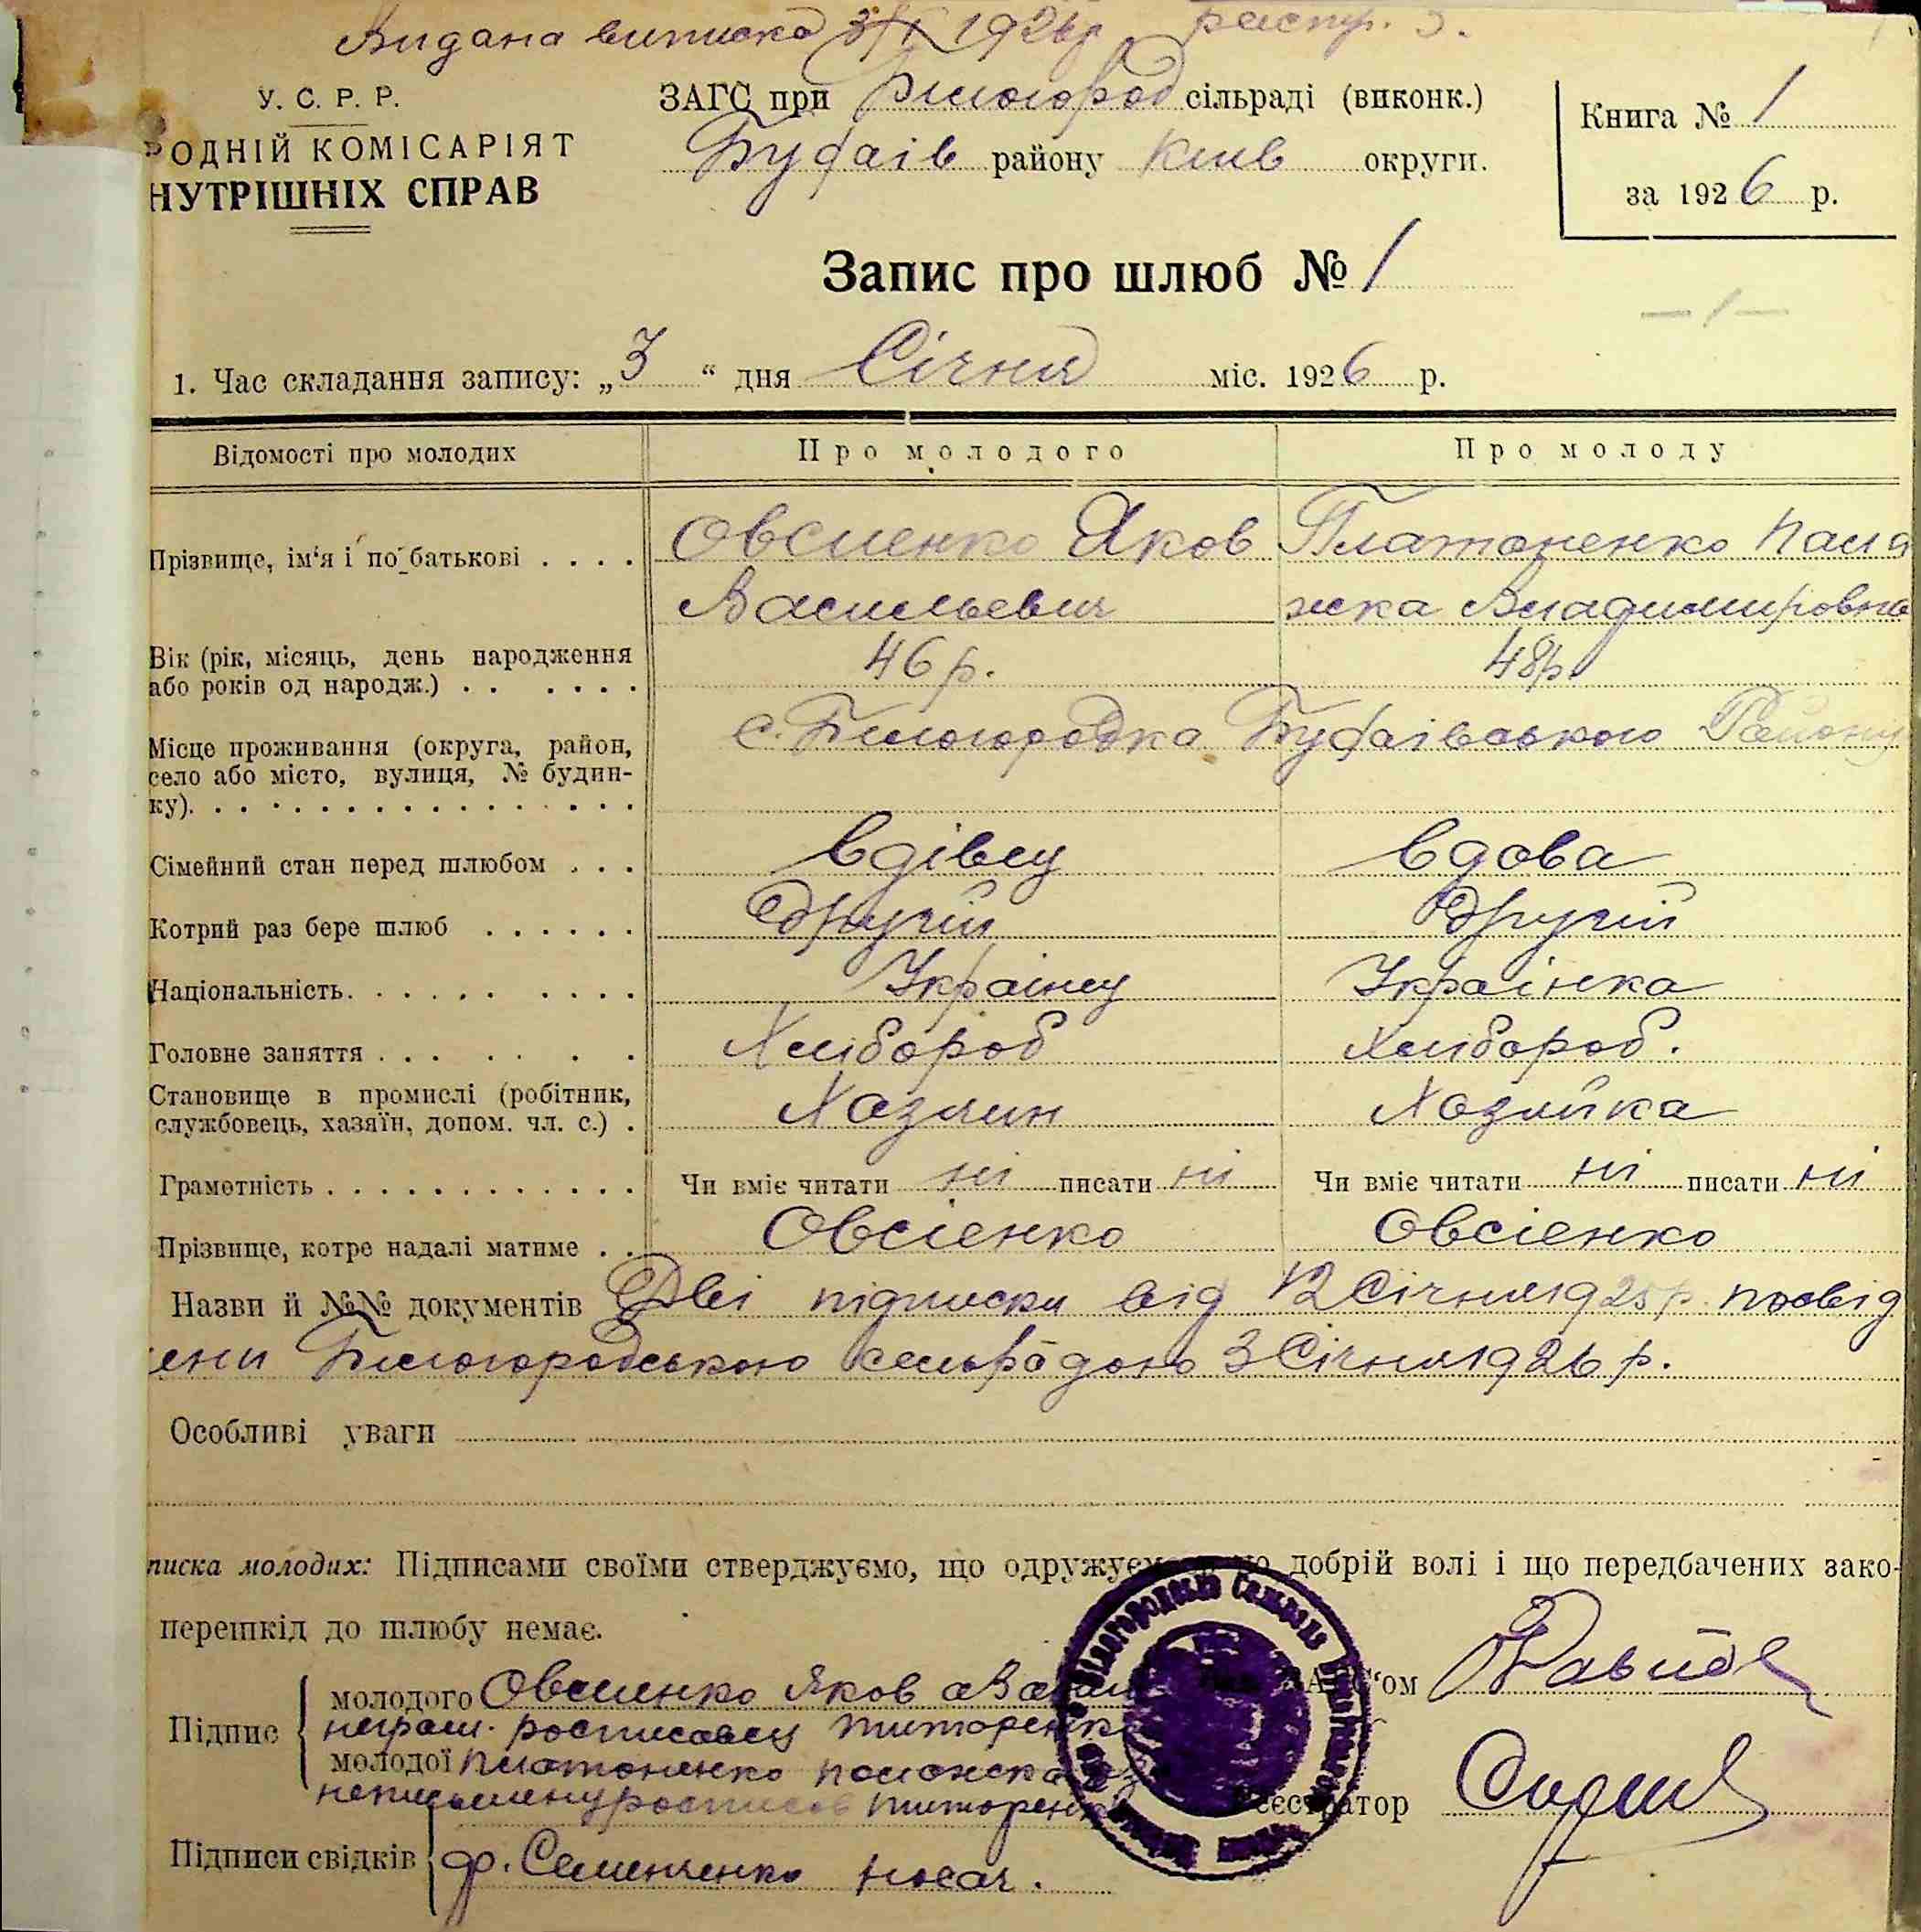 Видана виписка 3/I 1926р. распр. 3.
У. С. Р. Р.
РОДНІЙ КОМІСАРІЯТ
НУТРІШНІХ СПРАВ
ЗАГС при Білогород сільраді (виконк.)
Будаів району Київ округи.
Книга № 1
за 1926 р.
Запис про шлюб № 1
— 1 —
1. Час складання запису: „3 “ дня Січня міс. 1926 р.
Відомості про молодих Про молодого Про молоду
Прізвище, ім‘я і по батькові . . . . Овсиенко Яков Платоненко Пала
Васильевич жка Владимировна
Вік (рік, місяць, день народження
або років од народж.) . . . . . . 46 р. 48р.
Місце проживання (округа, район,
село або місто, вулиця, № будин-
ку). . . . . . . . . . . . . . . . с. Білогородка Будаівського Району
Сімейний стан перед шлюбом . . . вдівец вдова
Котрий раз бере шлюб . . . . . . Другий Другий
Національність. . . . . . . . . . . Украінец Украінка
Головне заняття . . . . . . . Хлібороб Хлібороб.
Становище в промислі (робітник,
службовець, хазяїн, допом. чл. с.) . Хазяин Хозяйка
Грамотність . . . . . . . . . . . . . Чи вміє читати ні писати ні Чи вміє читати ні писати ні
Прізвище, котре надалі матиме . . Овсіенко Овсіенко
Назви й №№ документів Дві підписки від 12 Січня 1925 р. посвід
ени Білогородською сельрадою 3 Січня 1926 р.
Особливі уваги
писка молодих: Підписами своїми стверджуємо, що одружуємо по добрій волі і що передбачених зако-
перешкід до шлюбу немає.
Підпис молодого Овсиенко Яков а Ва
неграм. росписавсц Титоренк
молодої Платоненко
росписав Титоренк
ЗАГС‘ом
Реєстратор
Підписи свідків др. Семенченко Носач.